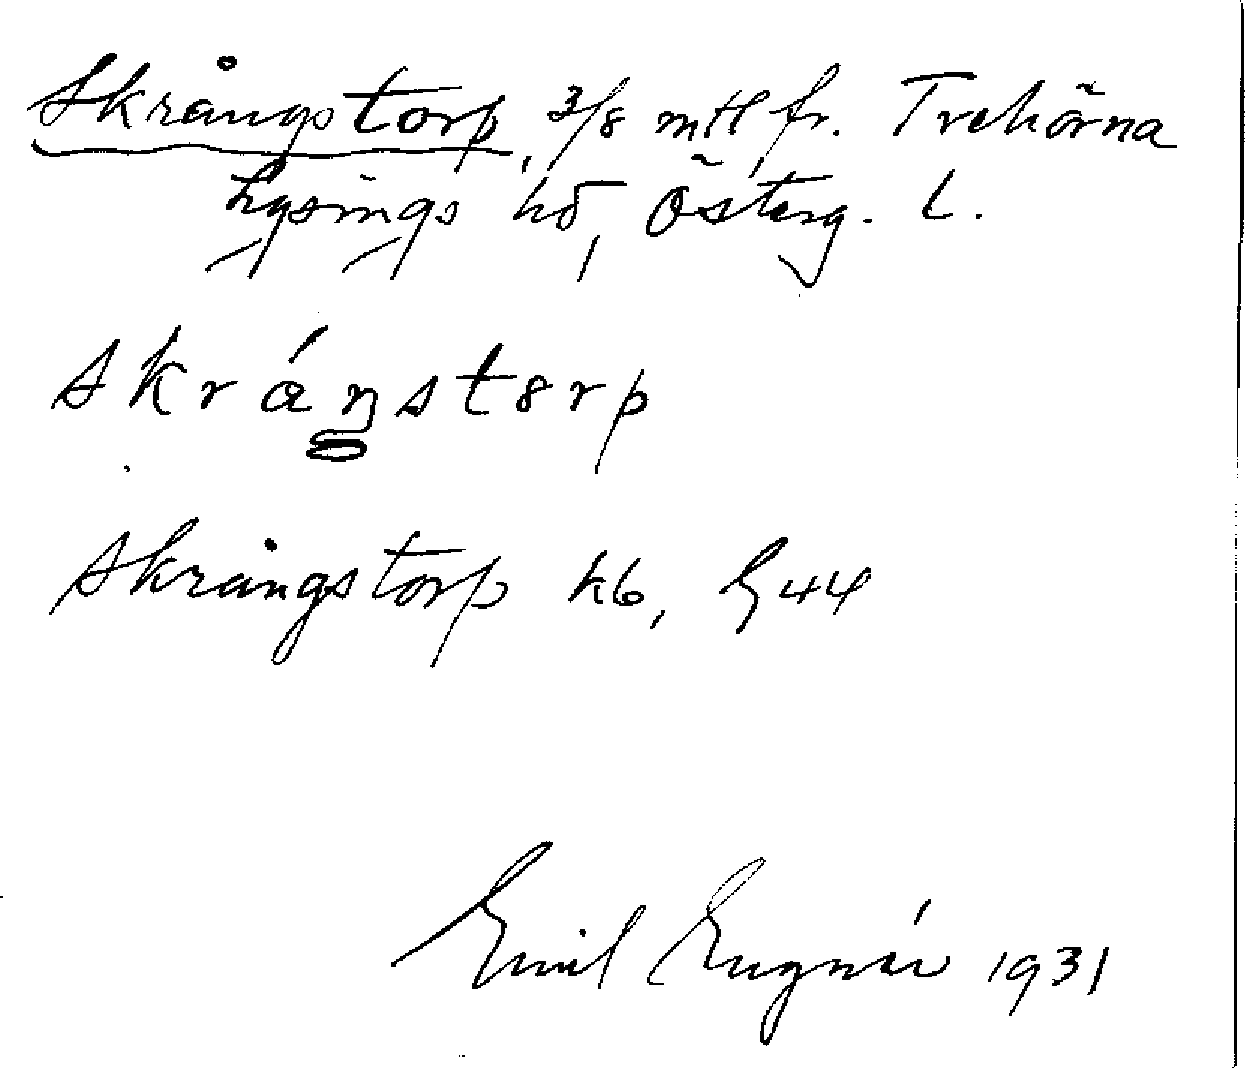 Skrångstorp, 3/8 mtl, fr. Trehörna
Lysings hd, Österg. L.
skráŋstorp
Skrångstorp k6, G44
Emil 1931